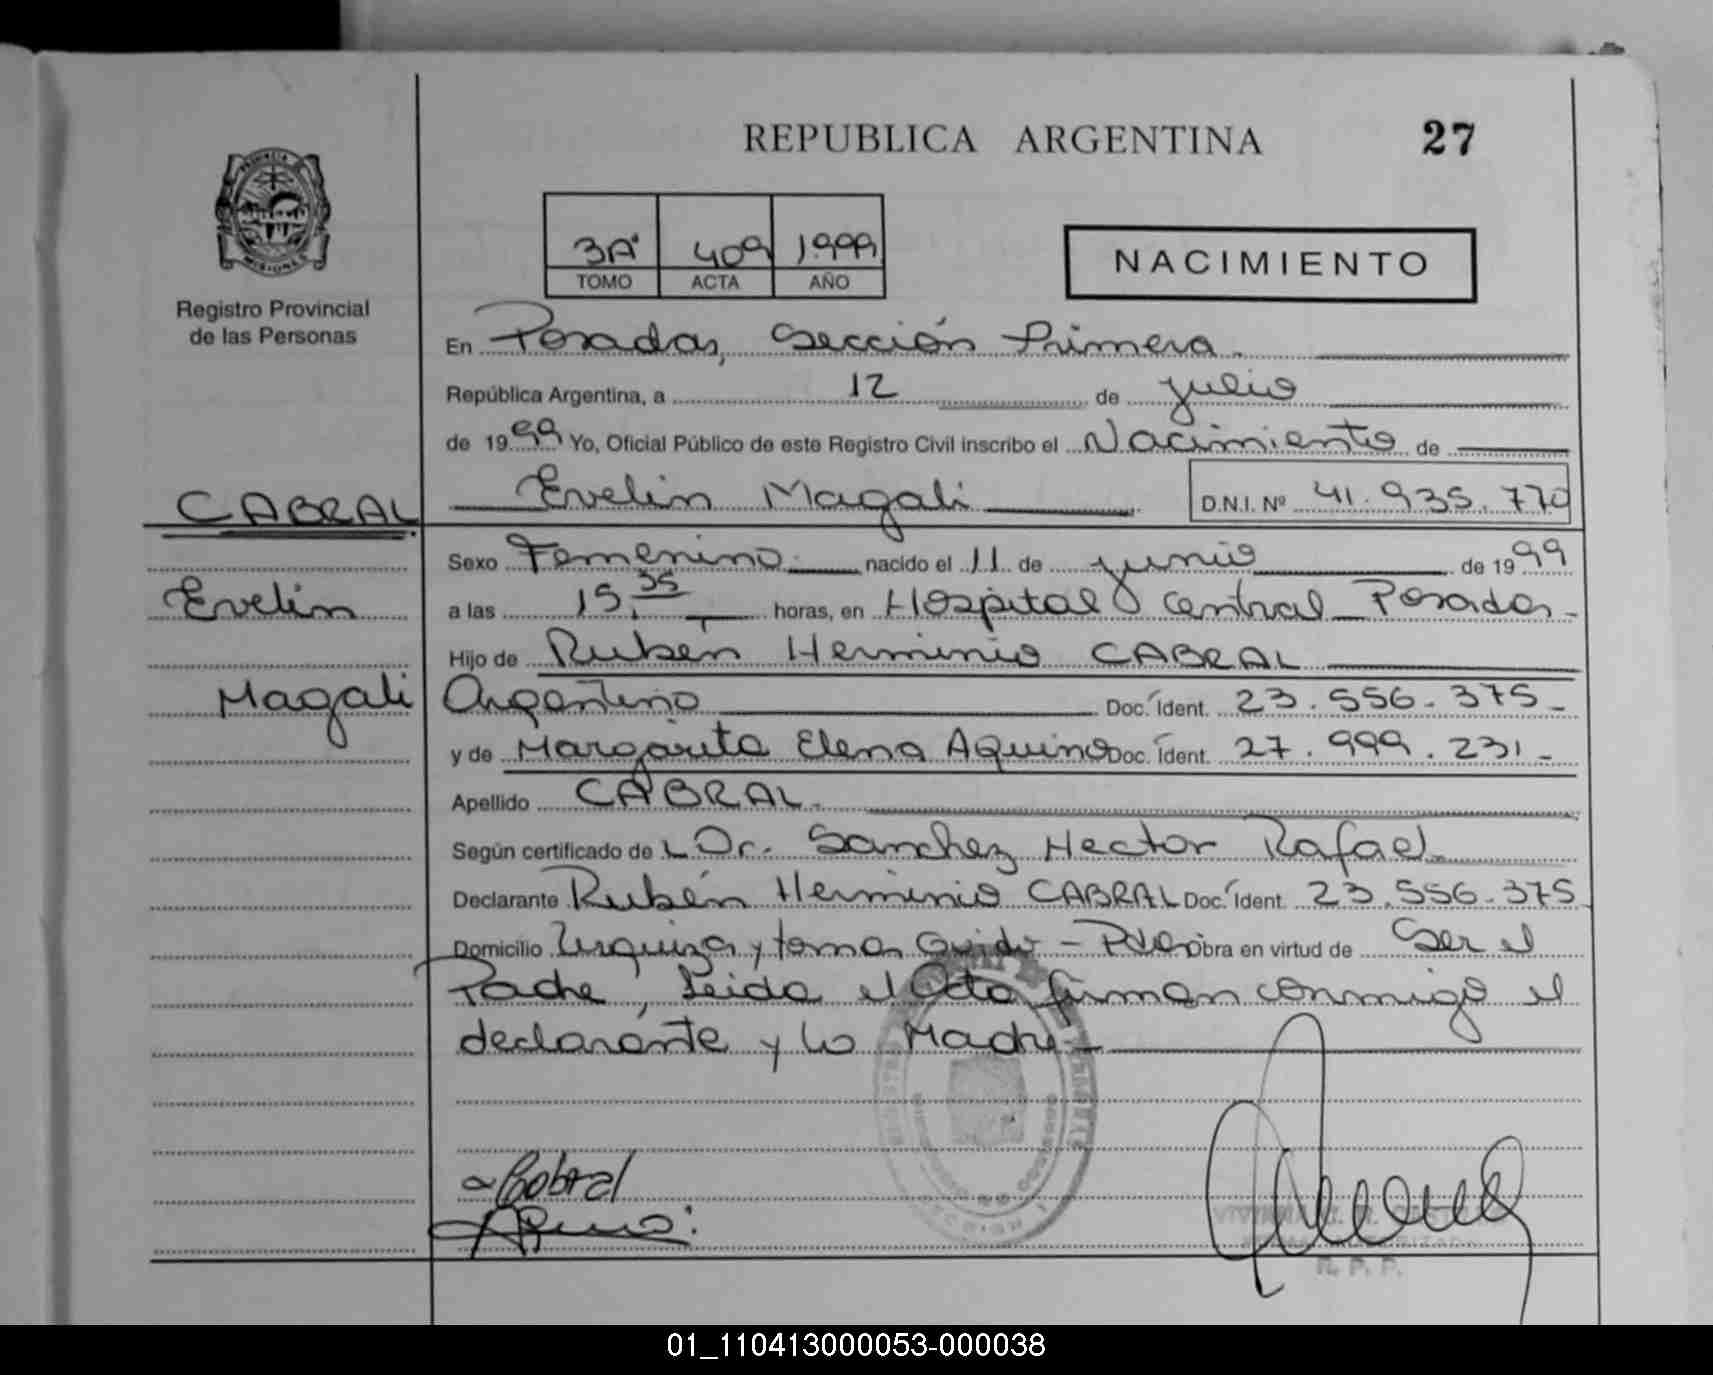 REPUBLICA ARGENTINA
27
PROVINCIA
MISIONES
Registro Provincial
de las Personas
3Aº 409 1.999
TOMO ACTA AÑO
NACIMIENTO
En Posadas, Sección Primera.
República Argentina, a 12 de julio
de 1999 Yo, Oficial Público de este Registro Civil inscribo el Nacimiento de
CABRAL
Evelin Magali D.N.I. Nº 41.935.770
Sexo Femenino nacido el 11 de junio de 1999
Evelin
a las 15.35 horas, en Hospital Central Posadas-
Hijo de Rubén Herminio CABRAL
Magali
Argentino Doc. Ident. 23.556.375-
y de Margarita Elena Aquino Doc. Ident. 27.999.231-
Apellido CABRAL.
Según certificado de L Dr. Sanchez Hector Rafael
Declarante Rubén Herminio CABRAL Doc. Ident. 23.556.375
Domicilio Urquiza y tomas Guido - Pdas Obra en virtud de Ser el
Padre, Leida el Acta firman conmigo el
declarante y la Madre-
Cabral
Aquino
R. P. P.
01_110413000053-000038